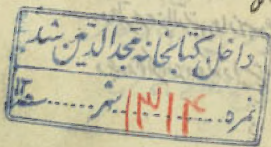 داخل کتابخانه مجدالدین شد
نمره ۱۳۱۴ شهر سنه ۱۳